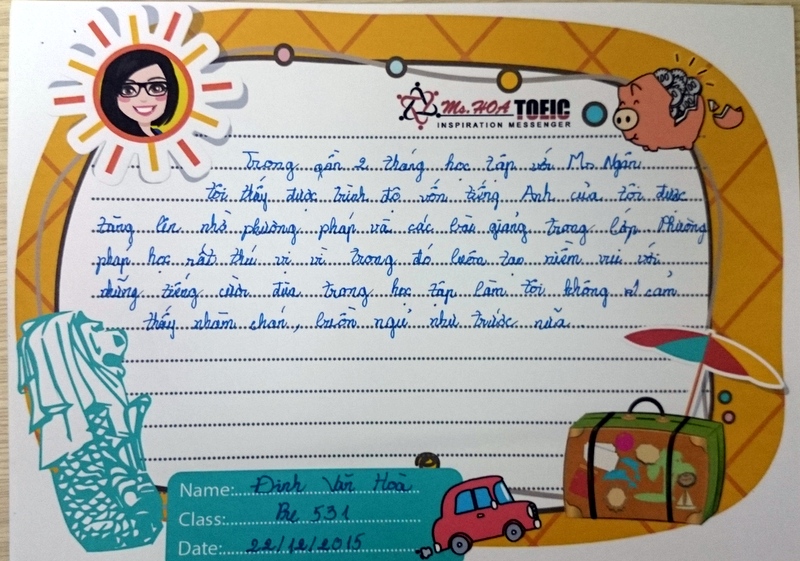 Ms. HOA TOEIC
INSPIRATION MESSENGER
Trong gần 2 tháng học tập với Ms Ngân
tôi thấy được trình độ vốn tiếng Anh của tôi được
tăng lên nhờ phương pháp và các bài giảng trong lớp Phương
pháp học rất thú vị vì trong đó luôn tạo niềm vui với
những tiếng cười đùa trong học tập làm tôi không cảm
thấy nhàm chán, buồn ngủ như trước nữa.
Name: Đinh Văn Hoà
Class: Pre 531
Date: 22/12/2015